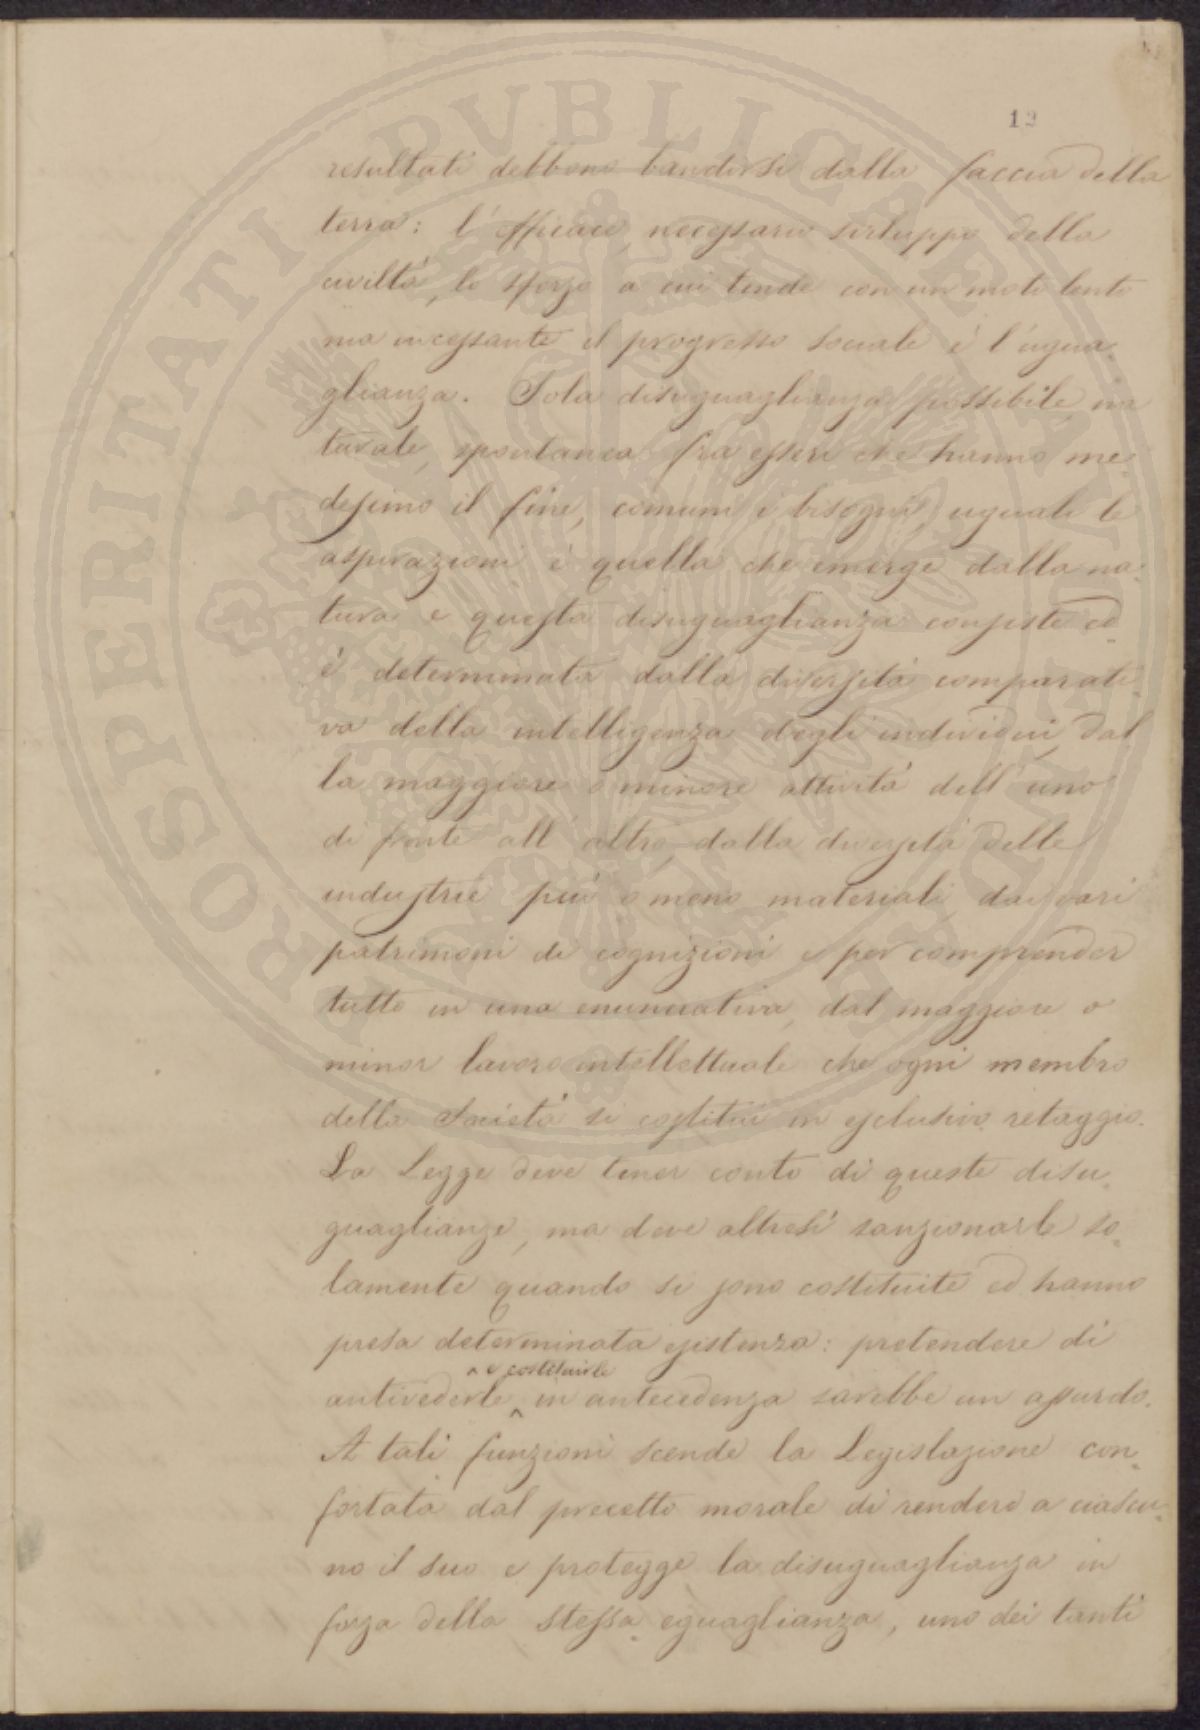 12
resultati debbono bandirsi dalla faccia della
terra: l'efficace, necessario sviluppo della
civiltà, lo sforzo a cui tende con un moto lento
ma incessante il progresso sociale è l'ugua-
glianza. Sola disuguaglianza possibile, na
turale, spontanea fra esseri che hanno me-
desimo il fine, comuni i bisogni, uguali le
aspirazioni è quella che emerge dalla na-
tura e questa disuguaglianza consiste ed
è determinata dalla diversità comparati-
va della intelligenza degli individui, dal
la maggiore o minore attività dell'uno
di fronte all'altro, dalla diversità delle
industrie più o meno materiali, dai vari
patrimoni di cognizioni e per comprender
tutto in una enunciativa, dal maggiore o
minor lavoro intellettuale che ogni membro
della Società si costituì in esclusivo retaggio.
La Legge deve tener conto di queste disu-
guaglianze, ma deve altresì sanzionarle so-
lamente quando si sono costituite ed hanno
presa determinata esistenza: pretendere di
^ e costituirle
antivederle ^ in antecedenza sarebbe un assurdo.
A tali funzioni scende la Legislazione con-
fortata dal precetto morale di rendere a ciascu-
no il suo e protegge la disuguaglianza in
forza della stessa eguaglianza, uno dei tanti
PROSPERITATI PVBLICAE